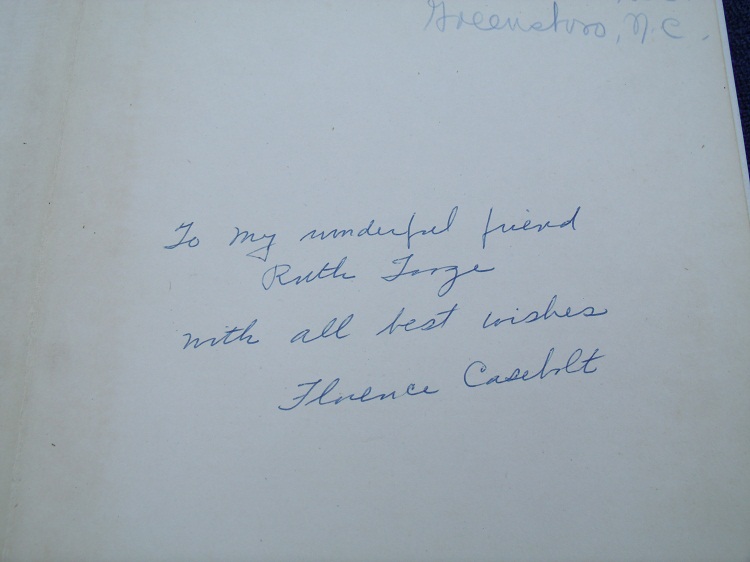 Greensboro, N.C.
To my wonderful friend
Ruth
with all best wishes
Florence Casebolt